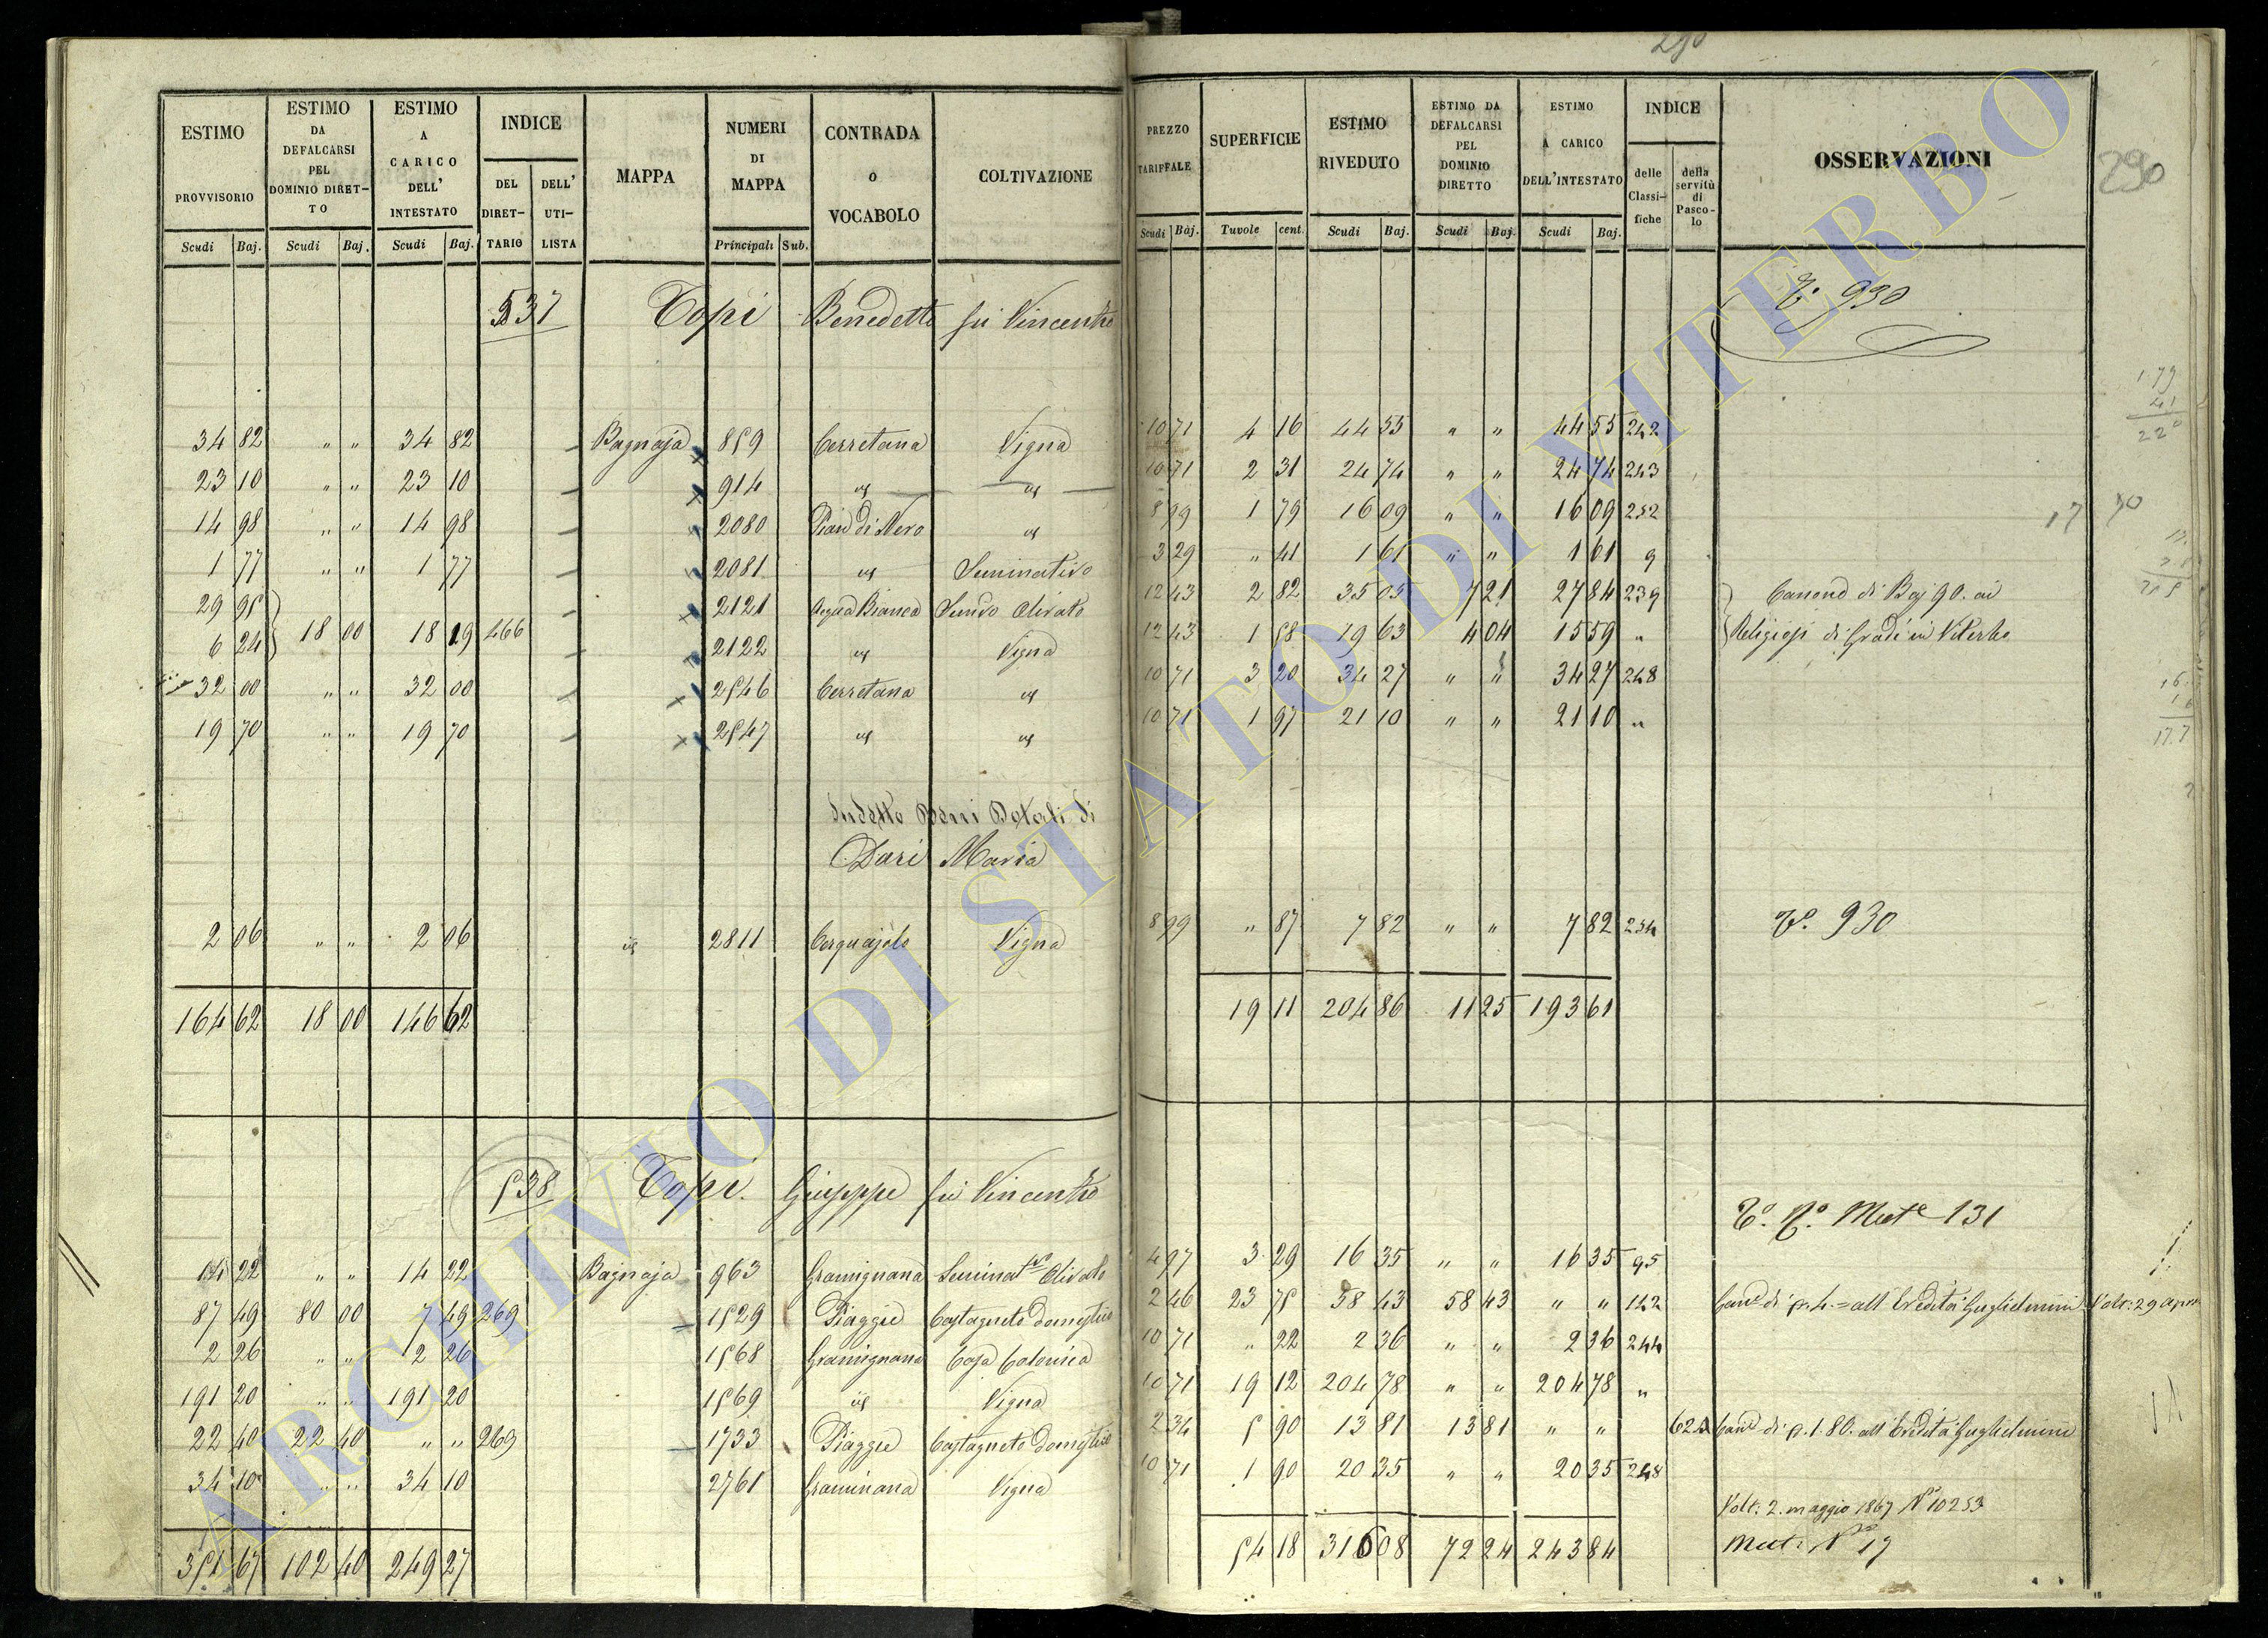 290
290
ESTIMO PROVVISORIO
ESTIMO DA DEFALCARSI PEL DOMINIO DIRETTO
ESTIMO A CARICO DELL' INTESTATO
INDICE
DEL DIRETTARIO
DELL' UTILISTA
MAPPA
NUMERI DI MAPPA
CONTRADA O VOCABOLO
COLTIVAZIONE
PREZZO TARIFFALE
SUPERFICIE
ESTIMO RIVEDUTO
ESTIMO DA DEFALCARSI PEL DOMINIO DIRETTO
ESTIMO A CARICO DELL'INTESTATO
INDICE
delle Classifiche
della servitù di Pascolo
OSSERVAZIONI
Scudi Baj. Scudi Baj. Scudi Baj. Principali Sub. Scudi Baj. Tavole cent. Scudi Baj. Scudi Baj. Scudi Baj.
537 Topi Benedetto fu Vincenzo 930
34 82 " " 34 82 Bagnaja 859 Cerretana Vigna 10 71 4 16 44 55 " " 44 55 242
23 10 " " 23 10 914 id id 10 71 2 31 24 74 " " 24 74 243
14 98 " " 14 98 2080 Pian di Nero id 8 99 1 79 16 09 " " 16 09 252
1 77 " " 1 77 2081 id Seminativo 3 29 " 41 1 61 " " 1 61 9
29 95 2121 Acqua Bianca Semvo Olivato 12 43 2 82 35 05 7 21 27 84 239 Canone di Baj 90. ai
6 24 18 00 18 19 466 2122 id Vigna 12 43 1 58 19 63 4 04 15 59 " Religiosi di Gradi in Viterbo
32 00 " " 32 00 2546 Cerretana id 10 71 3 20 34 27 " " 34 27 248
19 70 " " 19 70 2547 id id 10 71 1 97 21 10 " " 21 10 "
Sudetto Beni Dotali di
Dari Maria
2 06 " " 2 06 id 2811 Cerquajolo Vigna 8 99 " 87 7 82 " " 7 82 254 To. 930
164 62 18 00 146 62 19 11 204 86 11 25 193 61
538 Topi Giuseppe fu Vincenzo
To. No. Mute 131
14 22 " " 14 22 Bagnaja 963 Gramignana Seminatvo Olivato 4 97 3 29 16 35 " " 16 35 95
87 49 80 00 7 49 269 1529 Piaggie Castagneto domestico 2 46 23 75 58 43 58 43 " " 142 Cane di p. 4 = all' Eredità Guglielmini
2 26 " " 2 26 1568 Gramignana Casa Colonica 10 71 " 22 2 36 " " 2 36 244
191 20 " " 191 20 1569 id Vigna 10 71 19 12 204 78 " " 204 78 "
22 40 22 40 " " 269 1733 Piaggie Castagneto domestico 2 34 5 90 13 81 13 81 " " 62 Cane di p. 1. 80. all' Eredità Guglielmini
34 10 " " 34 10 2761 Graminana Vigna 10 71 1 90 20 35 " " 20 35 248
Volt: 2. maggio 1867 No 10253
351 67 102 40 249 27 54 18 316 08 72 24 243 84 Mut: No 19
ARCHIVIO DI STATO DI VITERBO